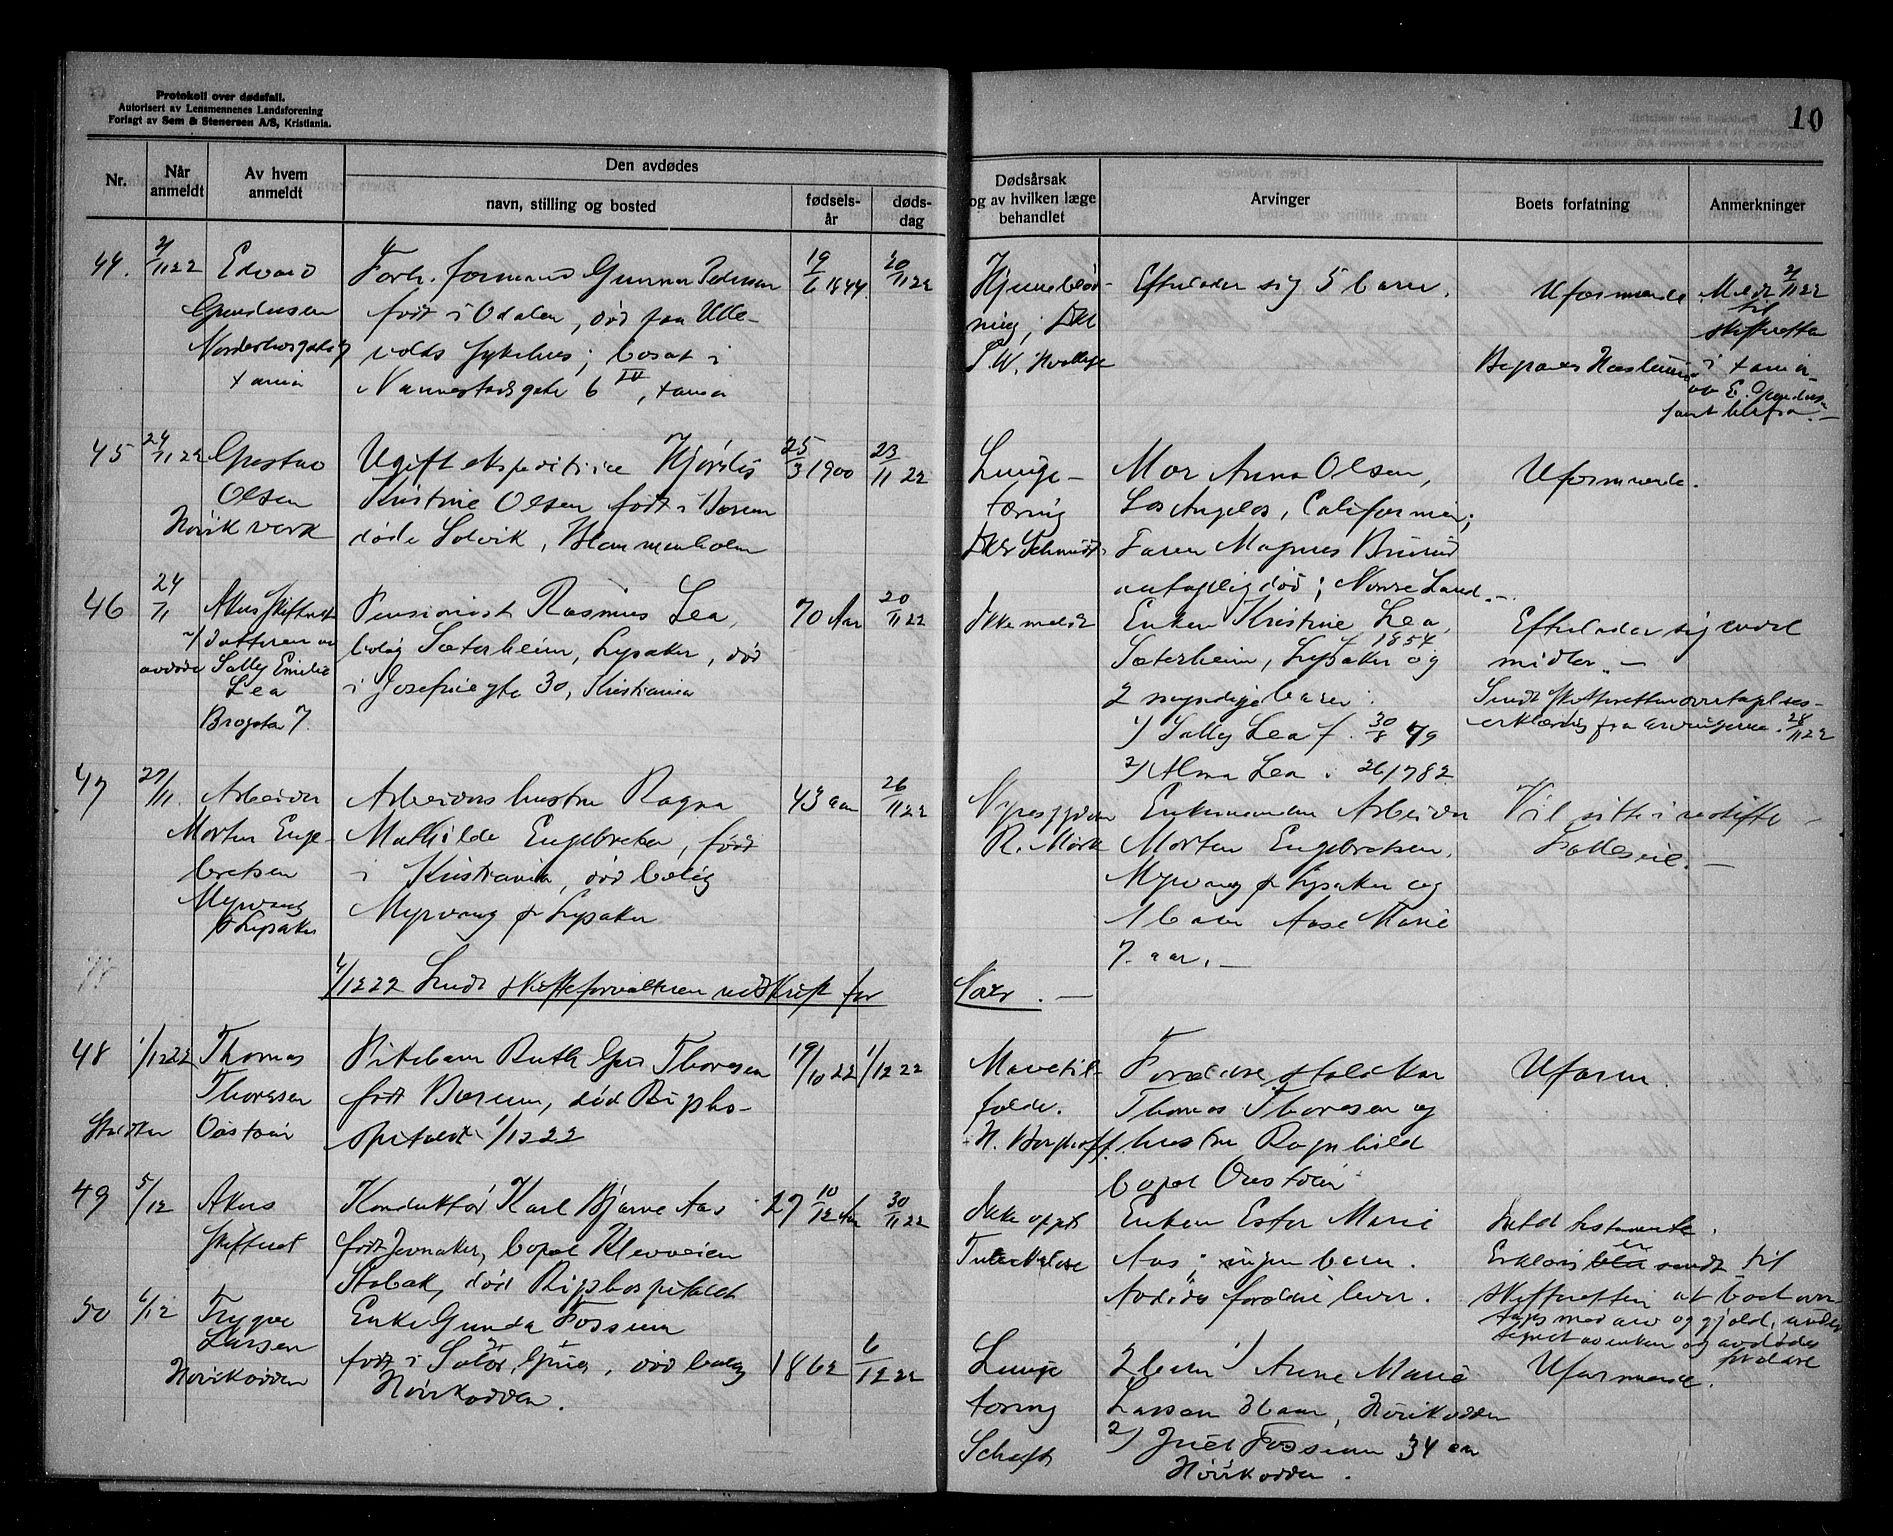 Protokoll over dødsfall.
Autorisert av Lensmennenes Landsforening
Forlagt av Sem & Stenersen A/S, Kristiania.
10
Nr.
Når anmeldt
Av hvem anmeldt
Den avdødes
navn, stilling og bosted
fødsels-år
døds-dag
Dødsårsak og av hvilken læge behandlet
Arvinger
Boets forfatning
Anmerkninger
44. 2/11 22 Edvard
Gundersen
+ania
Forh. formand Gunnar Pedersen
født i Odalen, død paa Ulle-
volds sykehus; bosat i
Nannestadsgate 6 IV, +ania
19/6 1844. 20/11 22
Hjerneblød-
ning; Dr
Efterlader sig 5 barn.
Uformuende
Meldt 2/11 22
til
skifteretten
i +ania
av E. Gundersen
samt telefon. —
45 24/11 22 Gustav
Olsen
Hövik verk
Ugift ekspeditrice Hjördis
Kristine Olsen født i Bærum
døde Solvik, Blommenholm
25/3 1900 23/11 22
Lunge-
tæring
Dr Schmidt
Mor Anna Olsen,
Los Angelos, California;
Faren Magnus
antagelig død; Nordre Land. —
Uformuende.
46 24/11 Akers skifterett
v/ datteren av
avdøde Sally Emilie
Lea
Brogata 7.
Pensionist Rasmus Lea,
bolig Sæterheim, Lysaker, død
i Josefinegt 30, Kristiania
70 Aar 20/11 22
Ikke meldt
Enken Kristine Lea,
f. 1854
Sæterheim, Lysaker og
2 myndige barn:
1) Sally Lea f. 30/8 79
2) Alma Lea " 26/7 82
Efterlader sig endel
midler. —
Sendt skifteretten overtagelses-
erklæring fra arvingerne. 28/11 22
47 27/11. Arbeider
Morten Enge-
bretsen
Myrvang
pr Lysaker
Arbeiders hustru Ragna
Mathilde Engebretsen, født
i Kristiania, død bolig
Myrvang pr Lysaker
43 aar 26/11 22
Nyresygdom
R. Mörk
Enkemanden Arbeider
Morten Engebretsen,
Myrvang pr Lysaker og
1 barn Aase Marie
7. aar. —
Vil sitte i uskiftet —
Fælleseie. —
4/12 22 Sendt skifteforvalteren utskrift for
Nov. —
48 1/12 22 Thomas
Thoresen
Staldkar
Pikebarn Ruth Gro Thoresen
født Bærum, død Rigsho-
spitalet 1/12 22
19/10 22 1/12 22
Mavetil-
fælde.
Forældre staldkar
Thomas Thoresen og
hustru Ragnhild
bopæl
Uform.
49 5/12 Akers
skifteret
Konduktør Karl Bjarne Aas
født Jevnaker, bopæl Klevveien
Stabæk, død Rigshospitalet
27 10/12 Aar 30/11 22
Ikke opgit
Tuberkulose
Enken Ester Marie
Aas; ingen barn.
Avdødes forældre lever.
Intet testamente.
Erklæring er sendt til
skifteretten at boet over-
tages med arv og gjeld, under-
tegnet av enken og avdødes
forældre
50 6/12 Trygve
Larsen
Hövikodden
Enke Gunda Fossum
født i Solør, Grue, død bolig
Hövikodden.
1862 6/12 22
Lunge
tæring
Scheft
2 barn 1) Anne Marie
Larsen 36 aar, Hövikodden
2) Juel Fossum 34 aar
Hövikodden.
Uformuende.